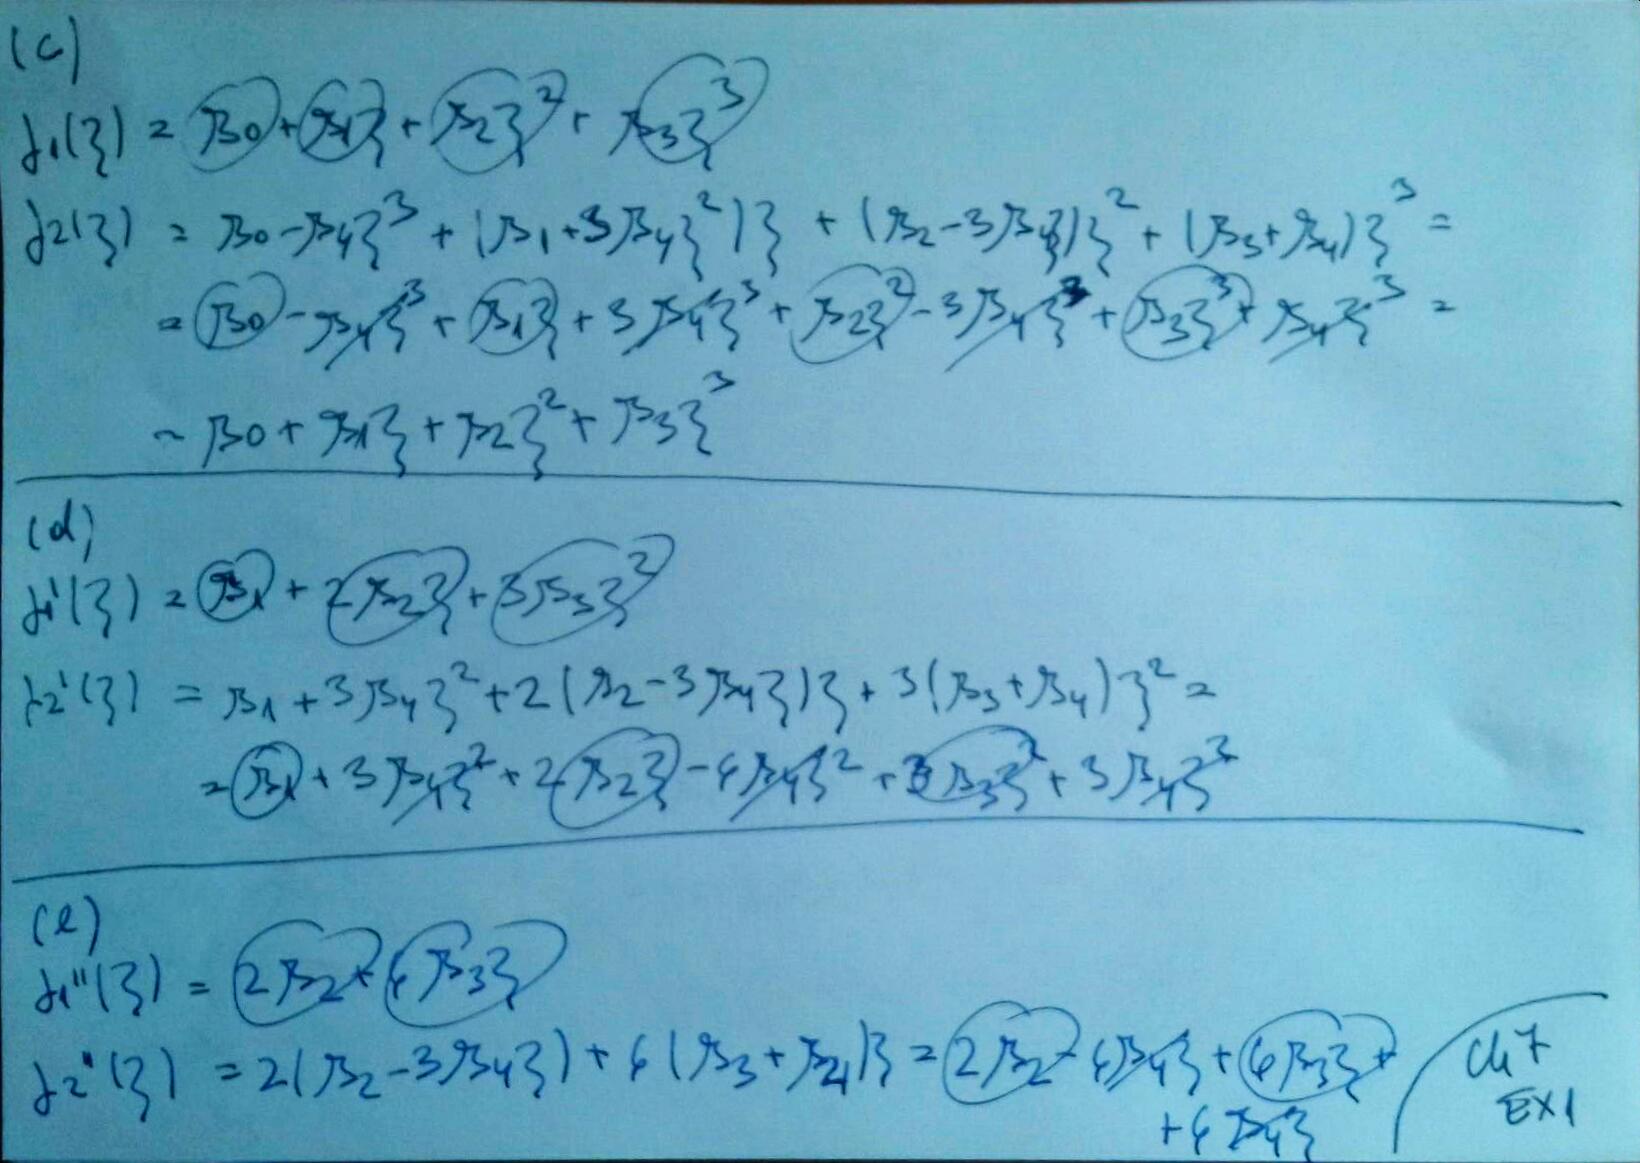 (c)
f1(ξ) = β0 + β1ξ + β2ξ² + β3ξ³
f2(ξ) = β0 - β4ξ³ + (β1 + 3β4ξ²)ξ + (β2 - 3β4ξ)ξ² + (β3 + β4)ξ³ =
= β0 - β4ξ³ + β1ξ + 3β4ξ³ + β2ξ² - 3β4ξ³ + β3ξ³ + β4ξ³ =
= β0 + β1ξ + β2ξ² + β3ξ³
(d)
f1'(ξ) = β1 + 2β2ξ + 3β3ξ²
f2'(ξ) = β1 + 3β4ξ² + 2(β2 - 3β4ξ)ξ + 3(β3 + β4)ξ² =
= β1 + 3β4ξ² + 2β2ξ - 6β4ξ² + 3β3ξ² + 3β4ξ²
(e)
f1''(ξ) = 2β2 + 6β3ξ
f2''(ξ) = 2(β2 - 3β4ξ) + 6(β3 + β4)ξ = 2β2 - 6β4ξ + 6β3ξ +
+ 6β4ξ
Ch 7
EX1